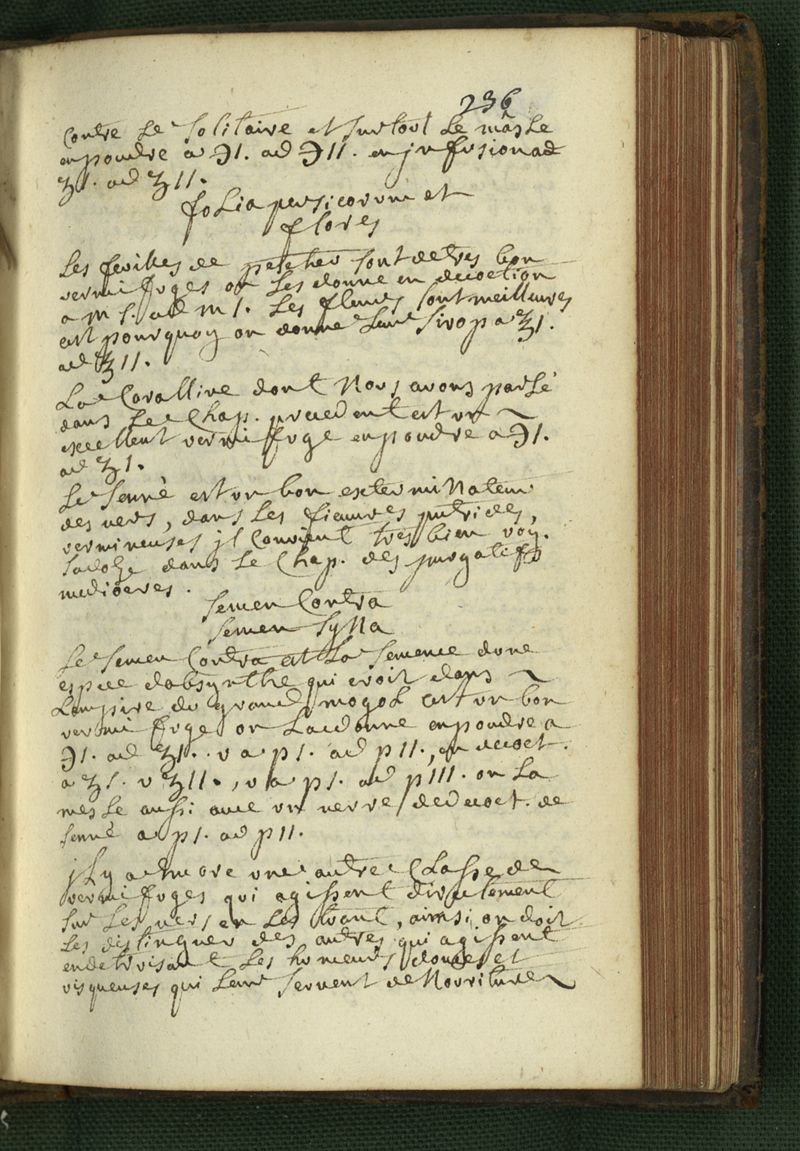 236
Contre Le Solitaire et surtout Le masle
en poudre a ℈1. ad ℈11. en jnfusion a
ʒ1. ad ʒ11.
folia persicorum et
flores
Les feuilles de pescher sont de tres bon
vermifuges on Les donne en decoction
a m s. ad m 1. Les fleurs sont meilleures
cest pourquoy on donne Leur Sirop a ʒ1.
ad ʒ11.
La Coralline dont Nous avons parlé
dans Le Chap. precedent est un
excellent vermifuge en poudre a ℈1.
ad ʒ1.
Le Senné est un bon exterminateur
des vers, dans Les fieuvres putrides,
vermineuses jl Convient tres bien voy.
sa doze dans Le Chap. des purgatifs
mediocres.
Semen Contra
Semen
Le Semen Contra est La Semence dune
espece dabsynthe qui croit dans
Lempire du grand mogol est un bon
vermifuge on La donne en poudre a
℈1. ad ʒ1. v a p1. ad p11., en decoct.
a ʒs. v ʒ11., v a p1. ad p111. on La
mesle aussi avec un verre de decoct. de
senné a p1. ad p11.
jl y a encore une autre Classe de
vermifuges qui agissent directement
sur Les vers en Les tuant, ainsi on doit
Les distinguer des autres qui agissent
en detruisant Les humeurs douces et
visqueuses qui Leur Servent de Nourriture